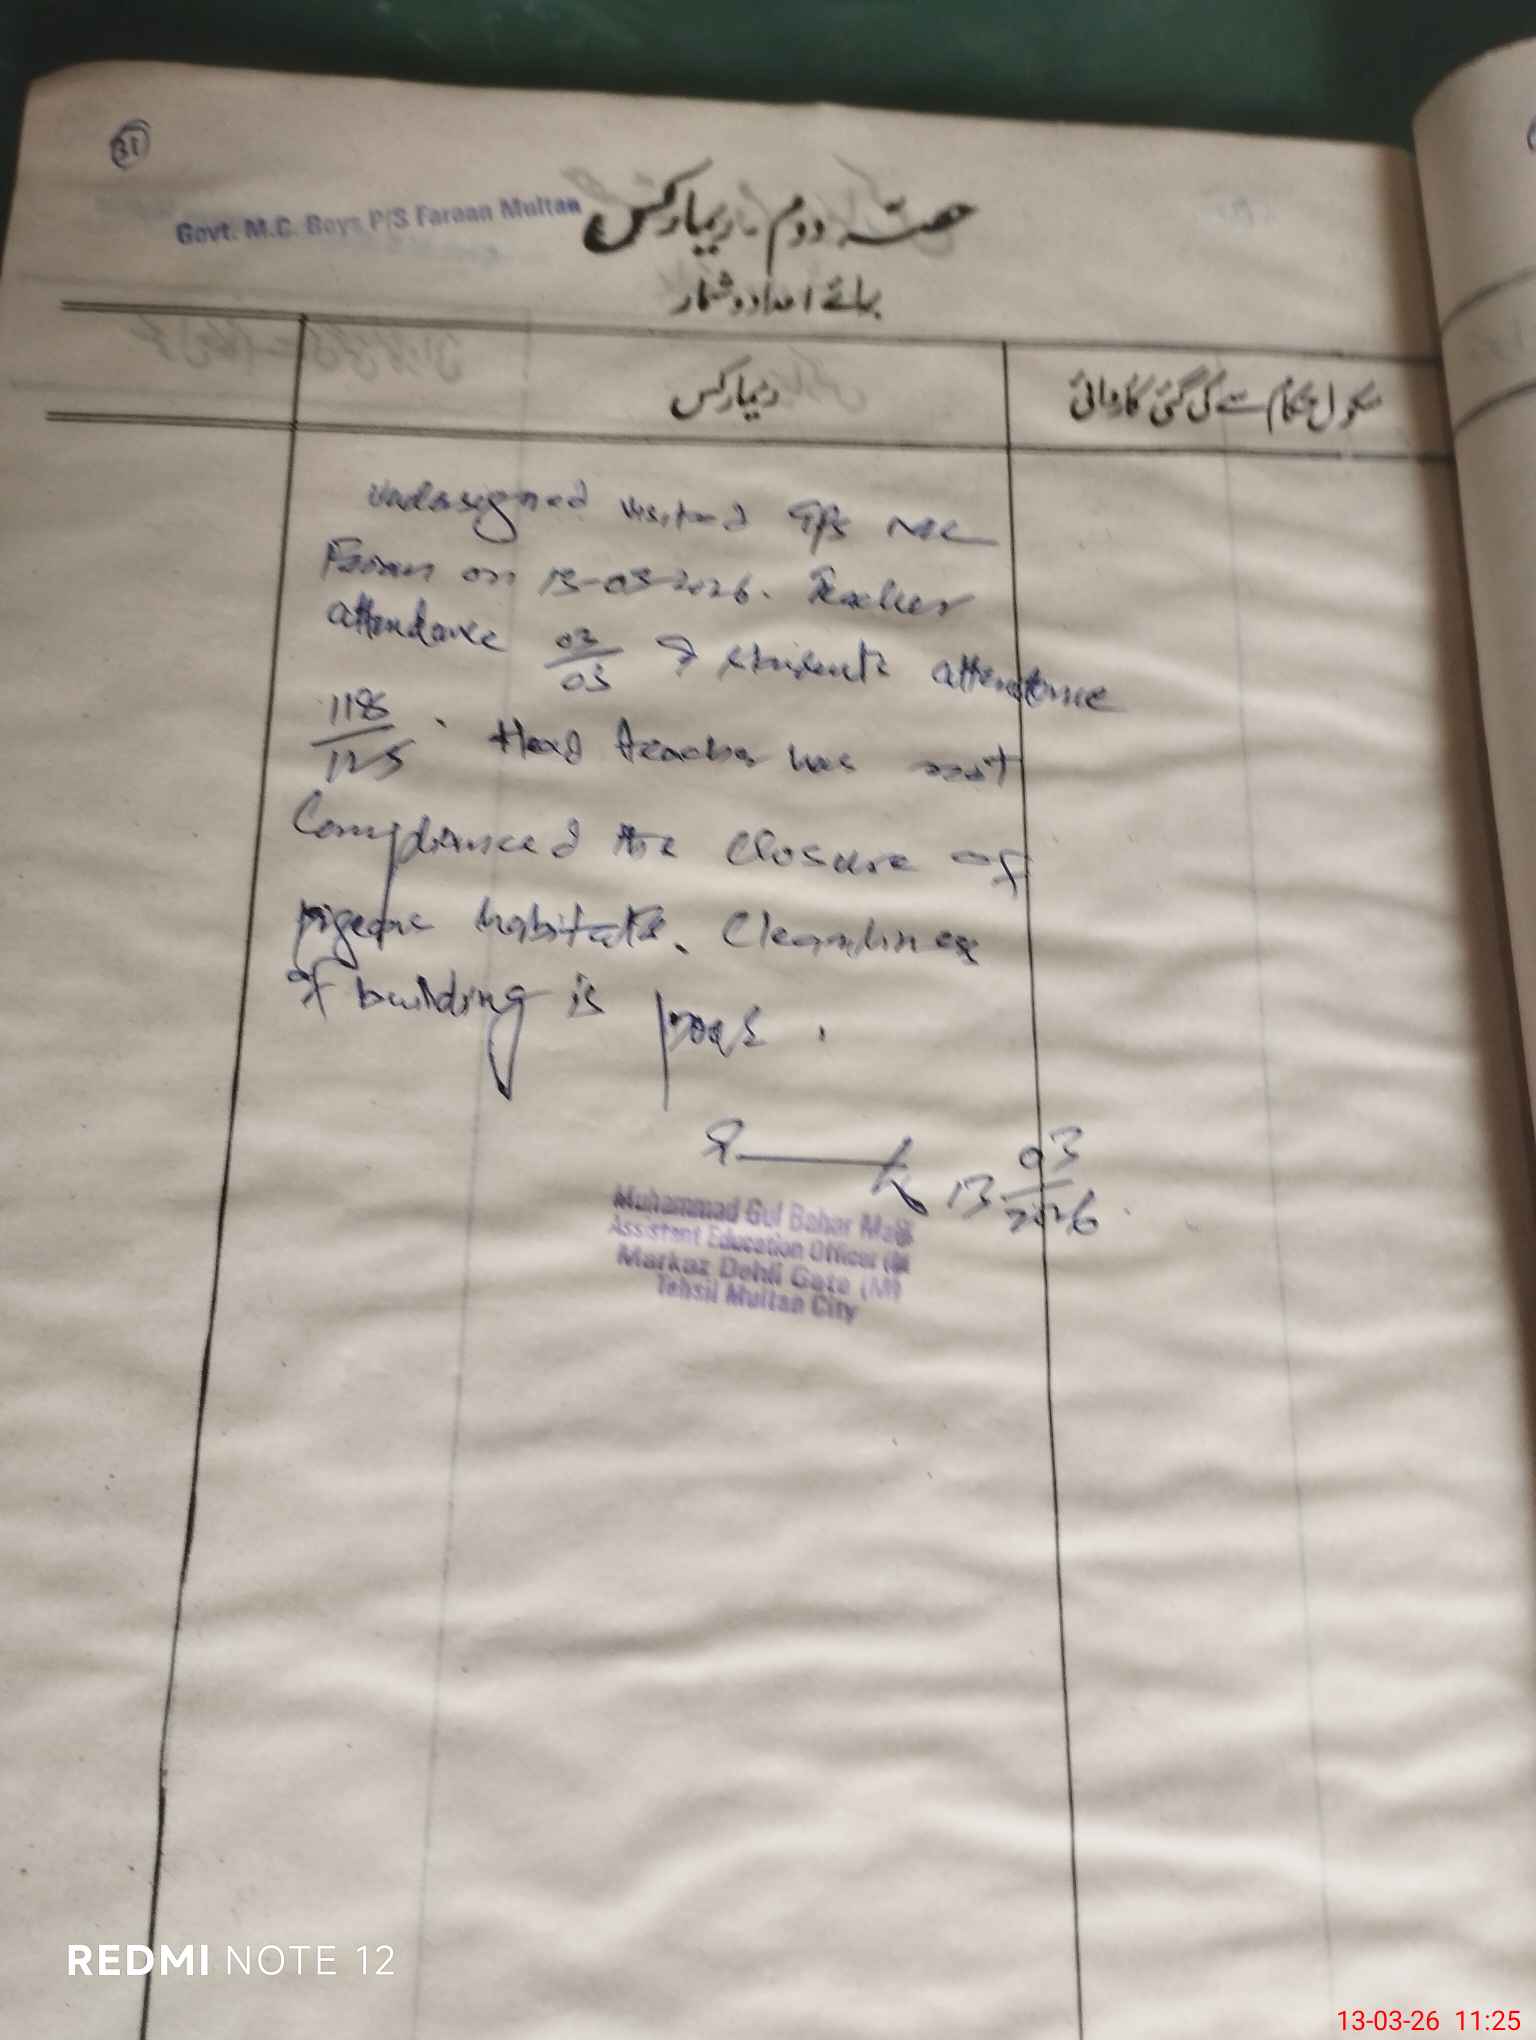 31
Govt. M.C. Boys P/S Faraan Multan
حصہ دوم - ریمارکس
برائے اعدادوشمار
ریمارکس
سکول حکام سے کی گئی کاروائی
Undersigned visited GPS MC
Faran on 13-03-2026. Teacher
attendance 03/03 & students attendance
118/125. Head teacher has not
Complianced the closure of
pigeons habitats. Cleanliness
of building is poor.
13 03/2026
Muhammad Gul Bahar
Assistant Education Officer
Markaz Dehli Gate (M)
Tehsil Multan City
REDMI NOTE 12
13-03-26 11:25